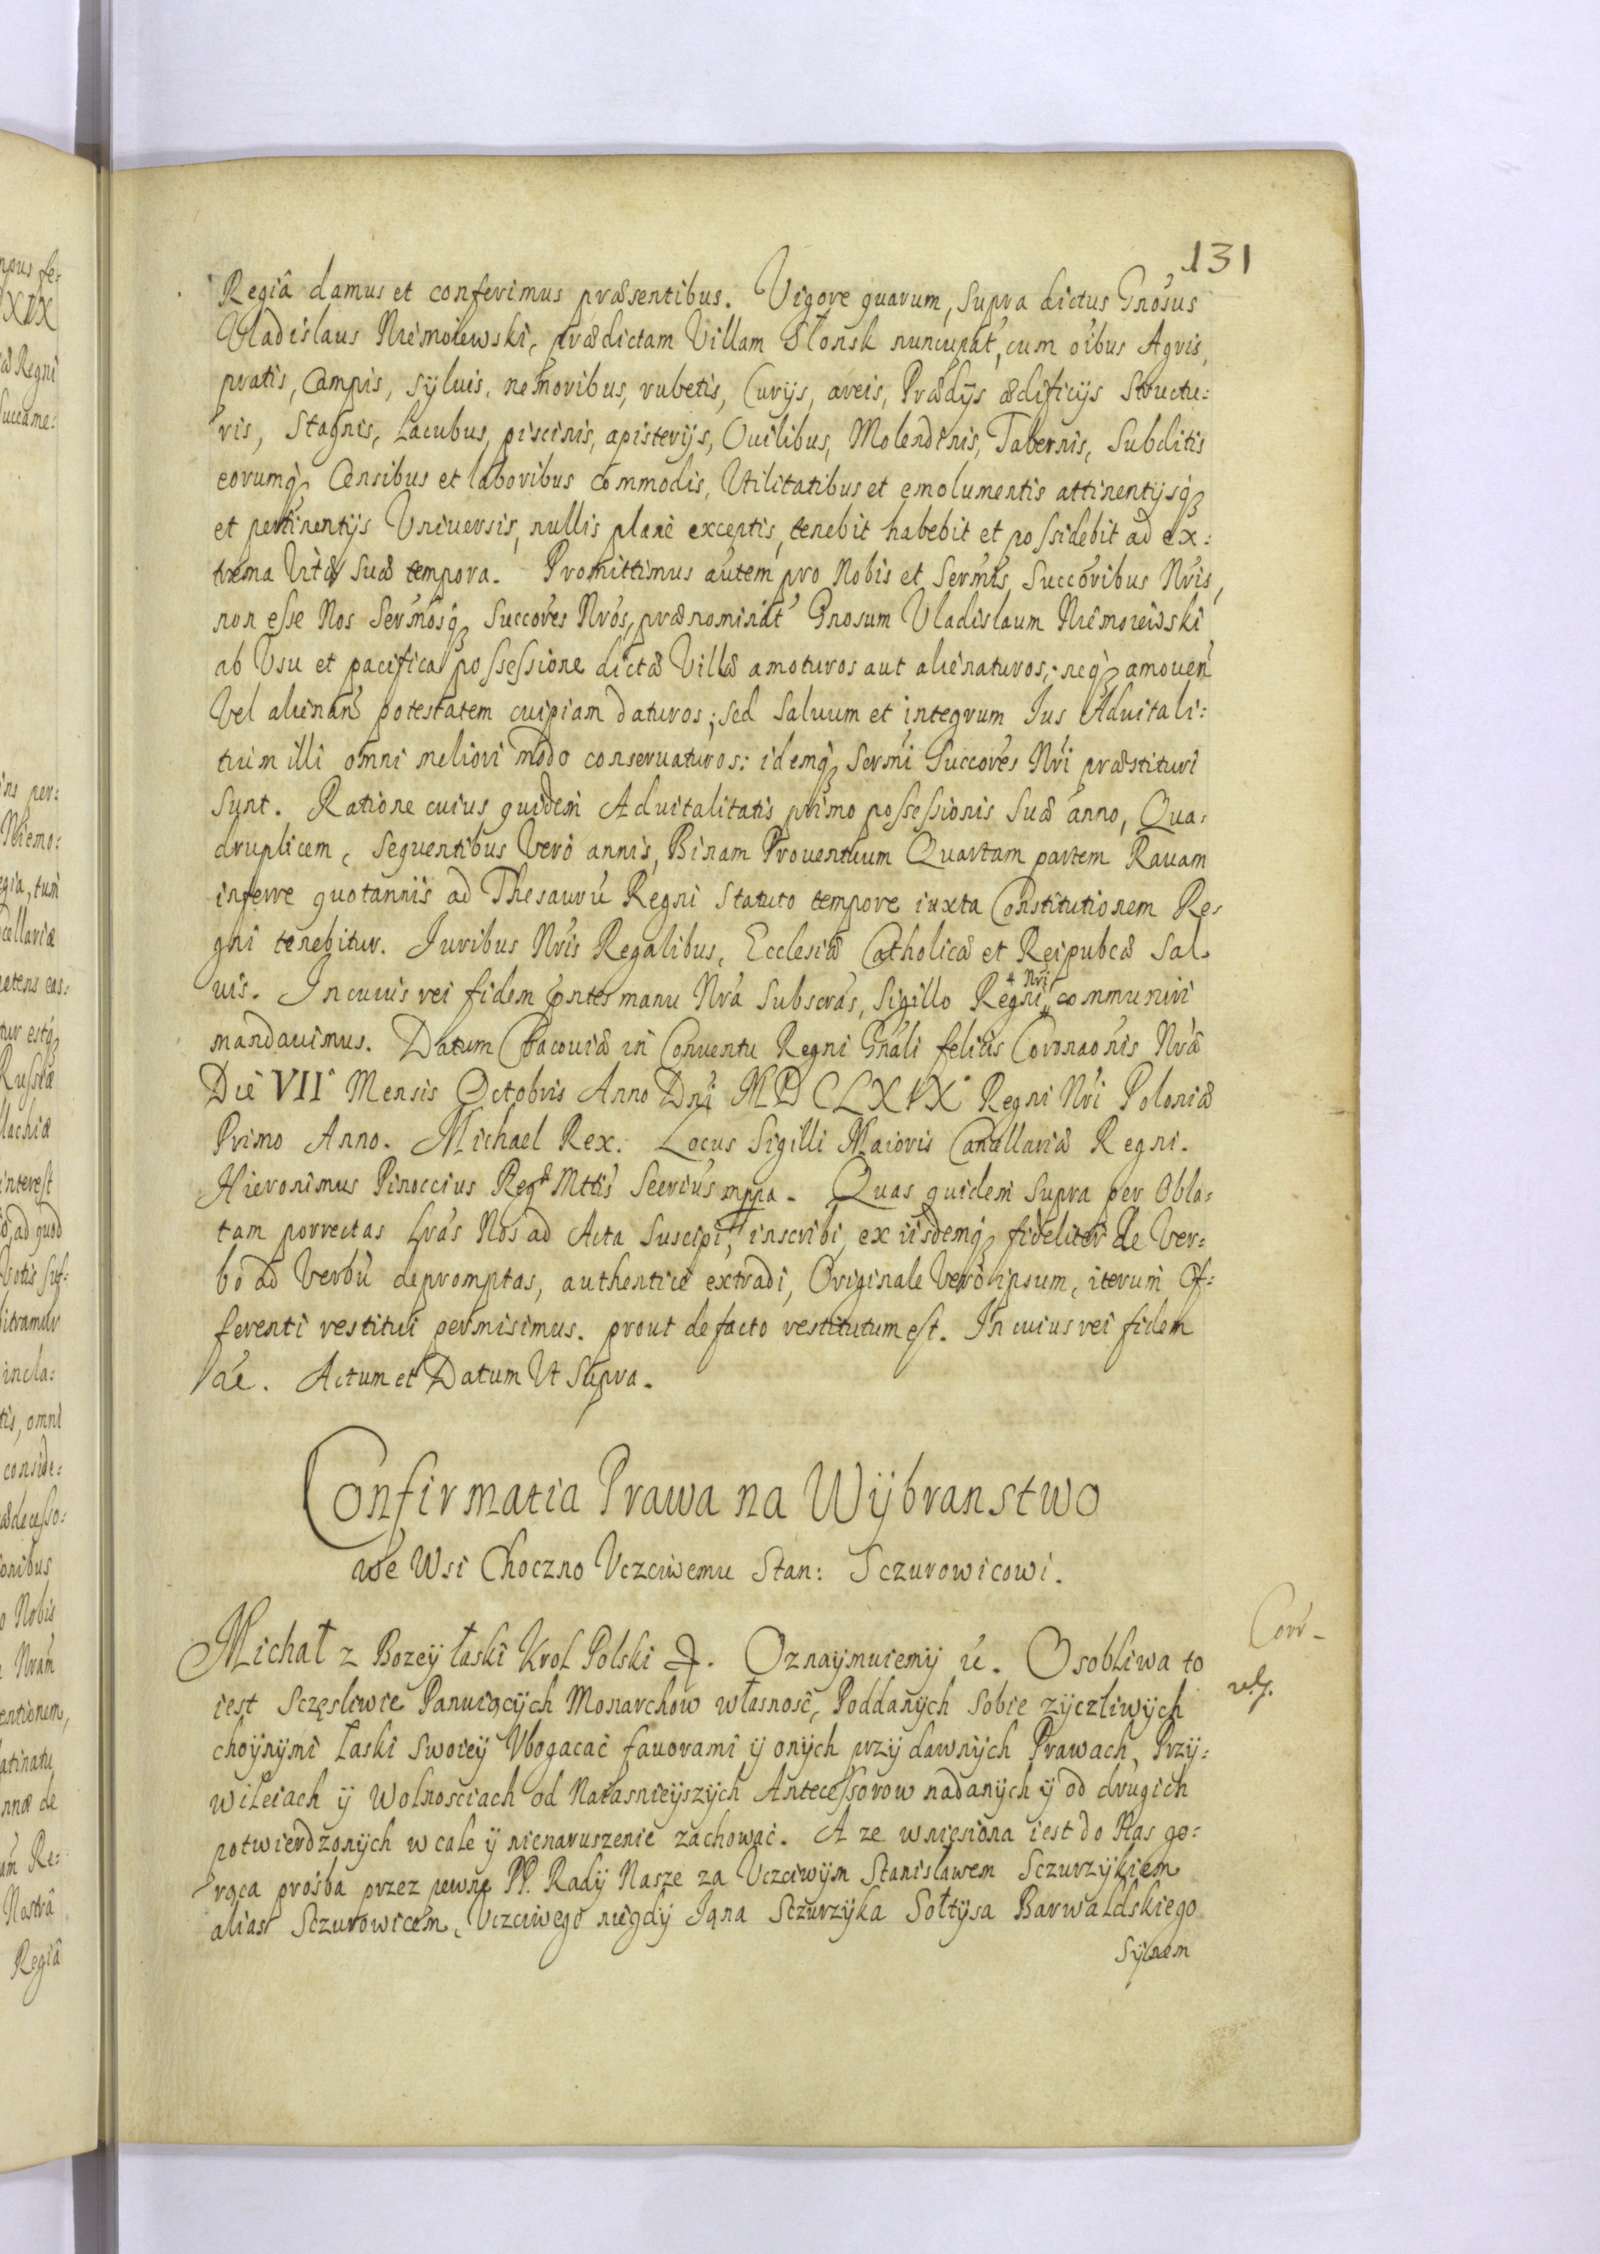 131
Regiâ damus et conferimus præsentibus. Vigore quarum, supra dictus Gnosus
Vladislaus Niemoiewski, prædictam Villam Słonsk nuncupat, cum oibus Agris,
pratis, Campis, syluis, nemoribus, rubetis, Curijs, areis, Prædijs ædificijs Structu:
ris, Stagnis, Lacubus, piscinis, apisterijs, Ouilibus, Molendinis, Tabernis, Subditis
eorumq Censibus et laboribus commodis, Vtilitatibus et emolumentis attinentijsq
et pertinentijs Vniuersis, nullis planè exceptis, tenebit habebit et possidebit ad ex:
trema Vitæ suæ tempora. Promittimus autem pro Nobis et Sermis Succoribus Nris,
non esse Nos Sermosq Succores Nros, prænominat Gnosum Vladislaum Niemoiewski
ab Vsu et pacifica possessione dictæ Villæ amoturos aut alienaturos, neq amouen
Vel alienan potestatem cuipiam daturos; sed saluum et integrum Ius Aduitali:
tium illi omni meliori modo conseruaturos: idemq Sermi Succores Nri præstituri
sunt. Ratione cuius quidem Aduitalitatis primo possessionis suæ anno, Qua:
druplicem, sequentibus Verò annis, Binam Prouentuum Quartam partem Rauam
inferre quotannis ad Thesauru Regni statuto tempore iuxta Constitutionem Re:
gni tenebitur. Iuribus Nris Regalibus, Ecclesiæ Catholicæ et Reipubcæ sal:
uis. In cuius rei fidem pntes manu Nra subscras, Sigillo Regni Nri communiri
mandauimus. Datum Cracouiæ in Conuentu Regni Gnali felicis Coronaonis Nræ
Die VII Mensis Octobris Anno Dni MDCLXIX Regni Nri Poloniæ
Primo Anno. Michael Rex. Locus Sigilli Maioris Cancellariæ Regni.
Hieronimus Pinoccius Regæ Mttis Secrius mppa. Quas quidem supra per Obla:
tam porrectas Lras Nos ad Acta suscipi, inscribi, ex iisdemq fideliter de Ver:
bo ad Verbu depromptas, authenticè extradi, Originale Verò ipsum, iterum Of:
ferenti restitui permisimus. prout de facto restitutum est. In cuius rei fidem
ac. Actum et Datum Vt Supra.
Confirmatia Prawa na Wybranstwo
we Wsi Choczno Vczciwemu Stan: Sczurowicowi.
Michał z Bozey łaski Krol Polski. Oznaymuiemy. Osobliwa to
iest Sczęsliwie Panuiącÿch Monarchow własnosć, Poddanÿch sobie zÿczliwÿch
choÿnÿmi łaski swoieÿ Vbogacać fauorami ÿ onÿch przÿ dawnÿch Prawach, Przÿ:
wileiach ÿ Wolnosciach od Naiasnieÿszÿch Antecessorow nadanÿch ÿ od drugich
potwierdzonÿch w cale ÿ nienaruszenie zachować. A ze wniesiona iest do Nas go:
rąca prośba przez pewne PP. Radÿ Nasze za Vczciwÿm Stanisławem Sczurzÿkiem
alias Sczurowicem, Vczciwego niegdÿ Jana Sczurzÿka Sołtÿsa Barwaldskiego
Sÿnem
Corr